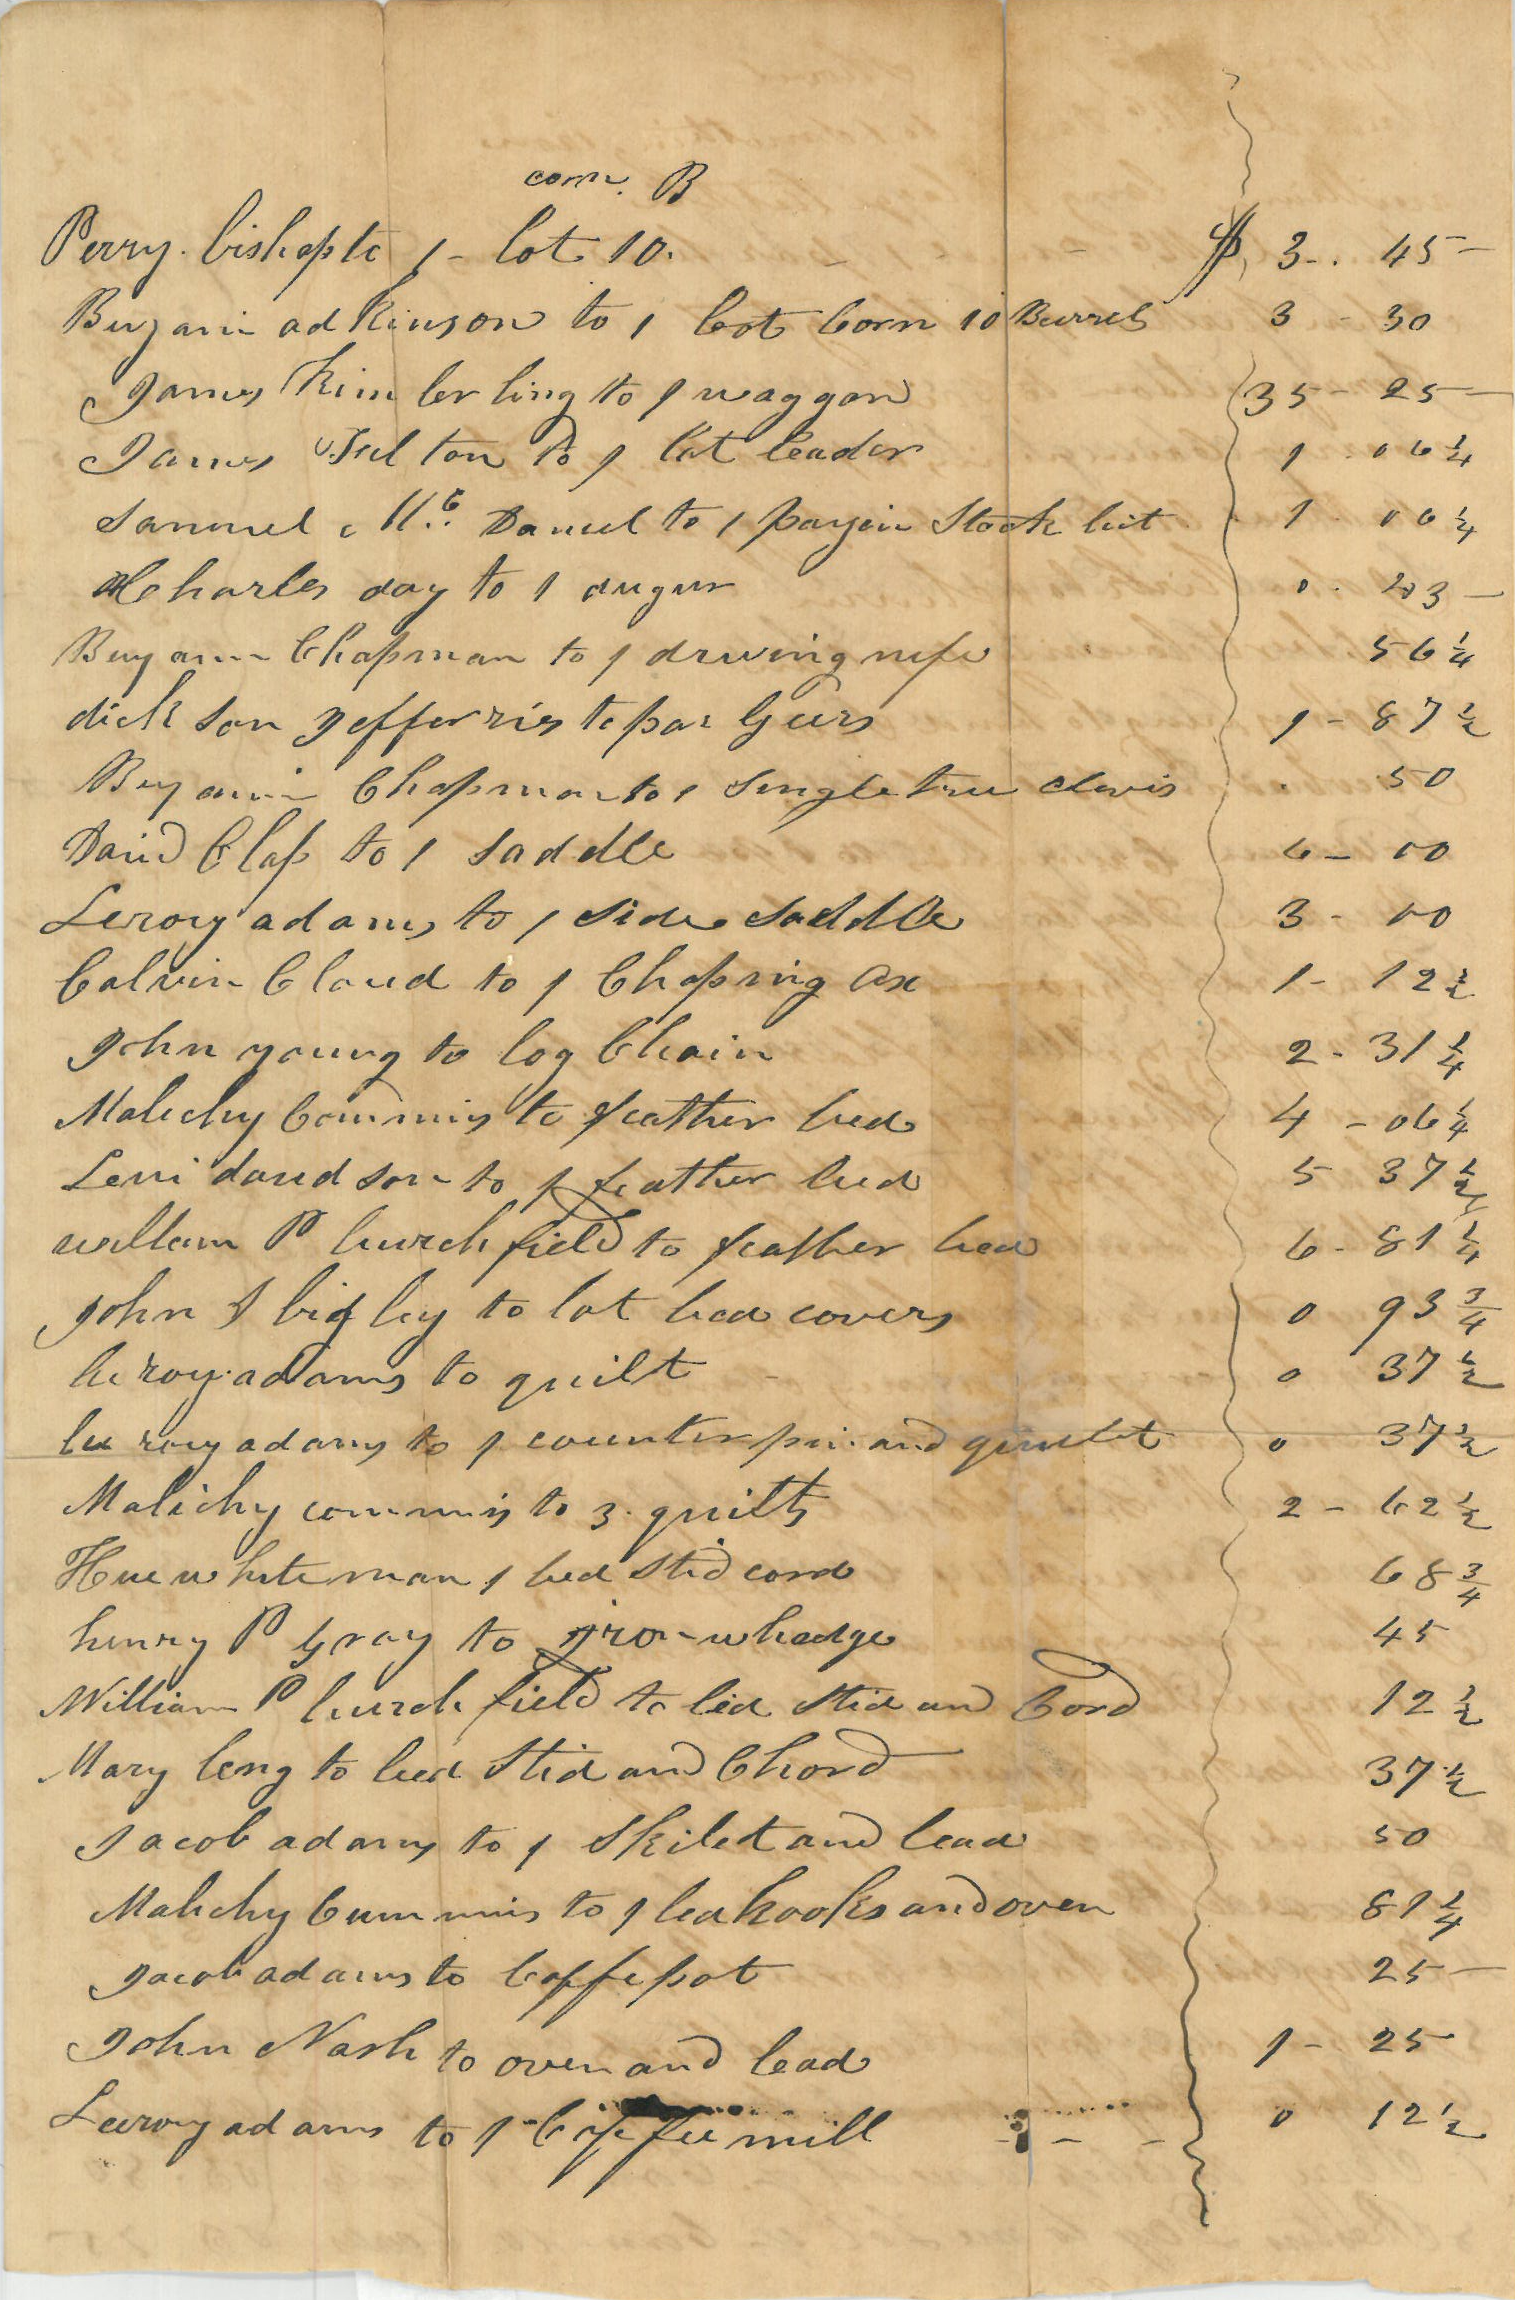 corn. B
Perry. bishop to 1 - lot 10. - - $ 3-. 45 -
Benjamin adkinson to 1 lot corn 10 Burrels 3 - 30
James Kimberling to 1 waggon 35 - 25 -
James Fulton to 1 lot leader 1 . 06 1/4
Samuel Mc. Daniel to 1 Stock bit 1 . 06 1/4
Charles day to 1 augur 0 . 23 -
Benjamin Chapman to 1 drwing nife 56 1/4
dickson Jefferris to par Geers 1 - 87 1/2
Benjamin Chapman to 1 Singletree clevis 50
David Clap to 1 Saddle 6 - 00
Leroy adams to 1 side saddle 3 - 00
Calvin Cloud to 1 Choping ax 1 - 12 1/2
John young to log Chain 2 - 31 1/4
Malichy Commins to feather bed 4 - 06 1/4
Levi davidson to 1 feather bed 5 37 1/2
william P burchfield to feather bed 6 - 81 1/4
John S bigley to lot bed covers 0 93 3/4
leroy adams to quilt - 0 37 1/2
leeroy adams to 1 counter pin and 0 37 1/2
Malichy commins to 3. quilts 2 - 62 1/2
Hue whiteman 1 bed stid cord 68 3/4
henry P Gray to iron whedge 45
William P burchfield to bed stid and Cord 12 1/2
Mary leng to bed stid and Chord 37 1/2
Jacob adams to 1 Skilet and lead 50
Malichy Cummins to 1 hooks and oven 81 1/4
Jacob adams to Coffe pot 25 -
John Nash to oven and lead 1 - 25
Leeroy adams to 1 Coffee mill - - - 0 12 1/2